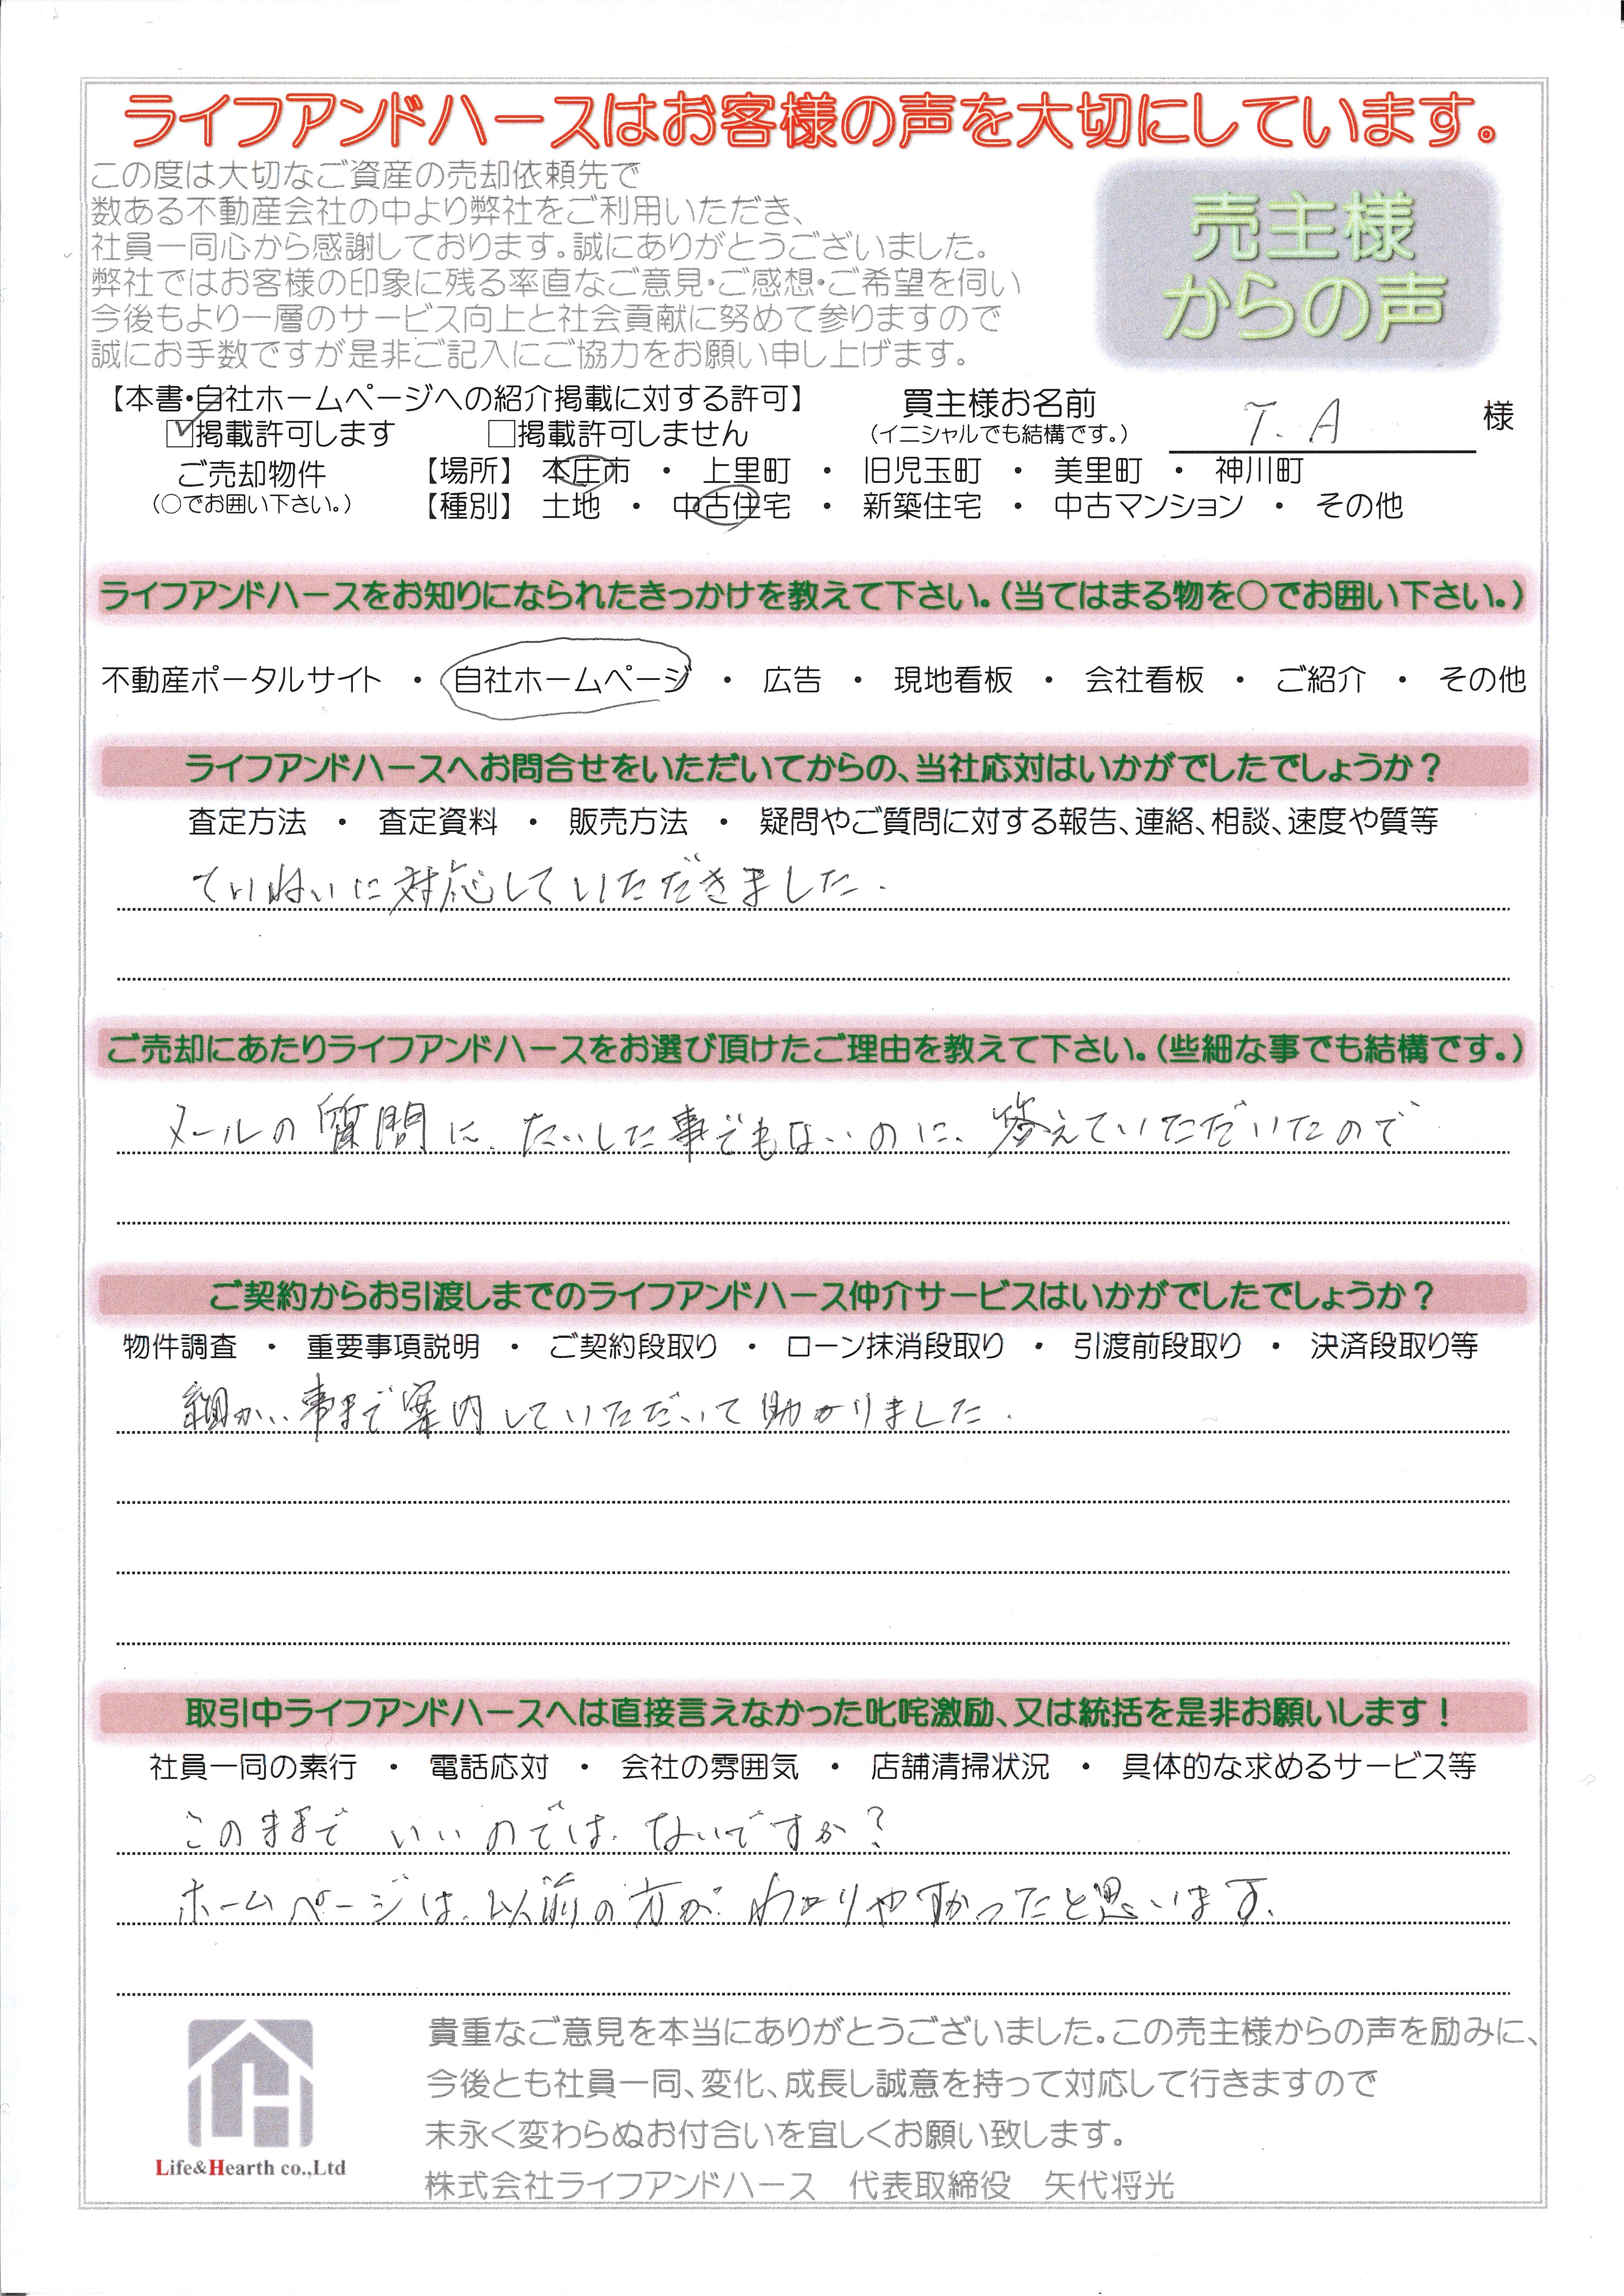 ライフアンドハースはお客様の声を大切にしています。
この度は大切なご資産の売却依頼先で
数ある不動産会社の中より弊社をご利用いただき、
社員一同心から感謝しております。誠にありがとうございました。
弊社ではお客様の印象に残る率直なご意見・ご感想・ご希望を伺い
今後もより一層のサービス向上と社会貢献に努めて参りますので
誠にお手数ですが是非ご記入にご協力をお願い申し上げます。
売主様
からの声
【本書・自社ホームページへの紹介掲載に対する許可】
☑掲載許可します □掲載許可しません
買主様お名前
(イニシャルでも結構です。)
T. A 様
ご売却物件
(○でお囲い下さい。)
【場所】 本庄市 ・ 上里町 ・ 旧児玉町 ・ 美里町 ・ 神川町
【種別】 土地 ・ 中古住宅 ・ 新築住宅 ・ 中古マンション ・ その他
ライフアンドハースをお知りになられたきっかけを教えて下さい。(当てはまる物を○でお囲い下さい。)
不動産ポータルサイト ・ 自社ホームページ ・ 広告 ・ 現地看板 ・ 会社看板 ・ ご紹介 ・ その他
ライフアンドハースへお問合せをいただいてからの、当社応対はいかがでしたでしょうか？
査定方法 ・ 査定資料 ・ 販売方法 ・ 疑問やご質問に対する報告、連絡、相談、速度や質等
ていねいに対応していただきました.
ご売却にあたりライフアンドハースをお選び頂けたご理由を教えて下さい。(些細な事でも結構です。)
メールの質問に、たいした事でもないのに、答えていただいたので
ご契約からお引渡しまでのライフアンドハース仲介サービスはいかがでしたでしょうか？
物件調査 ・ 重要事項説明 ・ ご契約段取り ・ ローン抹消段取り ・ 引渡前段取り ・ 決済段取り等
細かい事まで案内していただいて助かりました.
取引中ライフアンドハースへは直接言えなかった叱咤激励、又は統括を是非お願いします！
社員一同の素行 ・ 電話応対 ・ 会社の雰囲気 ・ 店舗清掃状況 ・ 具体的な求めるサービス等
このままで いいのでは、ないですか？
ホームページは、以前の方が、わかりやすかったと思います.
貴重なご意見を本当にありがとうございました。この売主様からの声を励みに、
今後とも社員一同、変化、成長し誠意を持って対応して行きますので
末永く変わらぬお付合いを宜しくお願い致します。
Life&Hearth co.,Ltd
株式会社ライフアンドハース 代表取締役 矢代将光